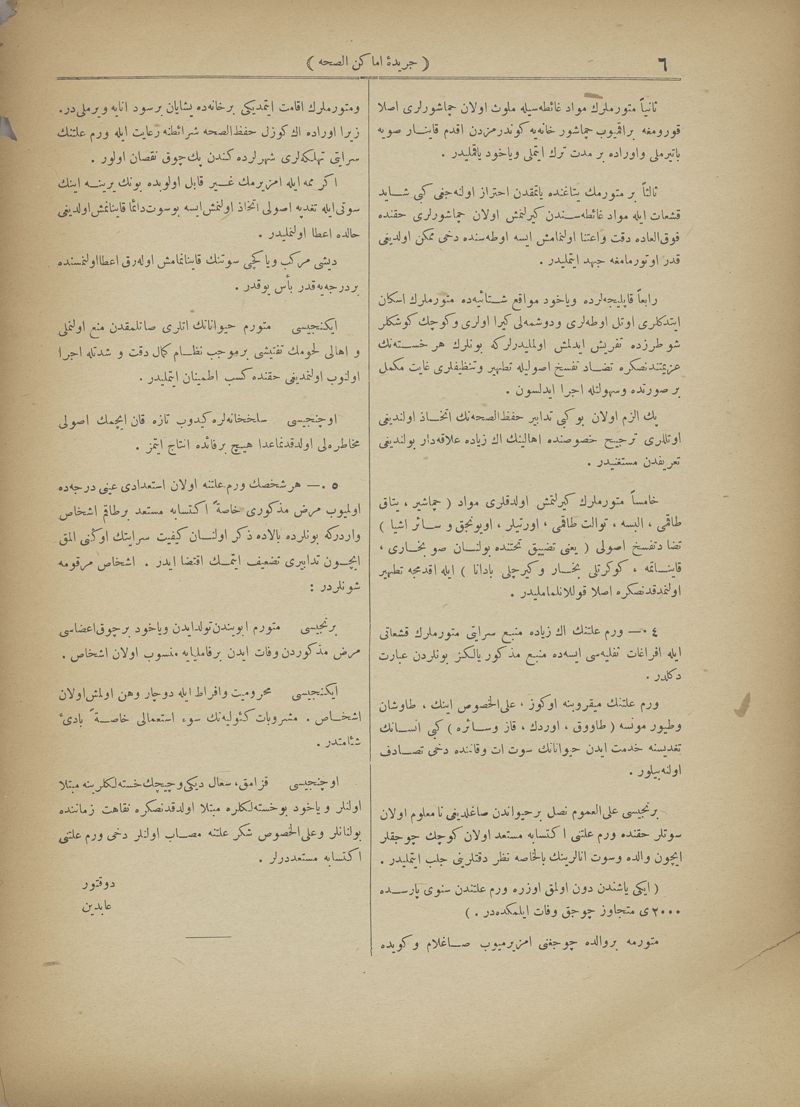 ٦
( جريدۀ اماكن الصحه )
ثانياً متورملرك مواد غائطه‌سيله ملوث اولان چماشورلری اصلا
قورومغه براقميوب چماشور خانه‌يه كوندرمزدن اقدم قاينار صويه
باتيرملی واوراده بر مدت ترك ايتملی وياخود يايقمليدر .
ثالثاً بر متورمك يتاغنده ياتمقدن احتراز اولنه‌جغی كبی شايد
قشعات ايله مواد غائطه‌سندن كيرلنمش اولان چماشورلری حقنده
فوق‌العاده دقت واعتنا اولنمامش ايسه اوطه‌سنده دخی ممكن اولديغی
قدر اوتورمامغه جهد ايتمليدر .
رابعاً قاپليجه‌لرده وياخود مواقع شتائيه‌ده متورملرك اسكان
ايتدكلری اوتل اوطه‌لری ودوشمه‌لی كيرا اولری وكوچك كوشكلر
شو طرزده تفريش ايدلمش اولمليدرلركه بونلرك هر خسته‌نك
عزيمتندنصكره تضاد تفسخ اصوليله تطهير وتنظيفلری غايت مكمل
بر صورتده وسهولتله اجرا ايدلسون .
پك الزم اولان بو كبی تدابير حفظ‌الصحه‌نك اتخاذ اولنديغی
اوتللری ترجيح خصوصنده اهالينك اك زياده علاقه‌دار بولنديغی
تعريفدن مستغنيدر .
خامساً متورملرك كيرلنمش اولدقلری مواد ( چماشير ، يتاق
طاقمی ، البسه ، توالت طاقمی ، اورتيلر ، اويونجق و سائر اشيا )
تضا دتفسخ اصولی ( يعنی تضييق تحتنده بولنان صو بخاری ،
قايناتمه ، كوكرتلی بخار وكيرچلی بادانا ) ايله اقدمجه تطهير
اولنمدقدنصكره اصلا قوللانلمامليدر .
٤ .— ورم علتنك اك زياده منبع سرايتی متورملرك قشعاتی
ايله افراغات ثفليه‌سی ايسه‌ده منبع مذكور يالكز بونلردن عبارت
دكلدر .
ورم علتنك ميقروبنه اوكوز ، علی‌الخصوص اينك ، طاوشان
وطيور مونسه ( طاووق ، اوردك ، قاز وسائره ) كبی انسانك
تغديسنه خدمت ايدن حيواناتك سوت ات وقاننده دخی تصادف
اولنه‌بيلور .
برنجيسی علی‌العموم نصل برحيواندن صاغلديغی نامعلوم اولان
سوتلر حقنده ورم علتنی اكتسابه مستعد اولان كوچك چوجقلر
ايچون والده وسوت انالرينك بالخاصه نظر دقتلرينی جلب ايتمليدر .
( ايكی ياشندن دون اولمق اوزره ورم علتندن سنوی پارسده
٢٠٠٠ ی متجاوز چوجق وفات ايلمكده‌در . )
متورمه بروالده چوجغنی امزيرميوب صاغلام وكويده
ومتورملرك اقامت ايتمديكی برخانه‌ده يشايان برسود انايه ويرملی‌در .
زيرا اوراده اك كوزل حفظ‌الصحه شرائطنه رعايت ايله ورم علتنك
سرايتی تهلكه‌لری شهرلرده كندن پك چوق نقصان اولور .
اكر ممه ايله امزيرمك غير قابل اولوبده بونك يرينه اينك
سوتی‌ايله تغديه اصولی اتخاذ اولنمش‌ايسه بوسوت‌دائما قاينانمش‌اولديغی
حالده اعطا اولنمليدر .
ديشی مركب وياكچی سوتنك قاينانمامش اوله‌رق اعطااولنمسنده
بردرجه‌يه‌قدر بأس يوقدر .
ايكنجيسی متورم حيواناتك اتلری صاتلمقدن منع اولنملی
و اهالی لحومك تفتيشی برموجب نظام كمال دقت و شدتله اجرا
اولنوب اولنمديغی حقنده كسب اطمينان ايتمليدر .
اوچنجيسی سلخخانه‌لره كيدوب تازه قان ايچمك اصولی
مخاطره‌لی اولدقدنماعدا هيچ برفائده انتاج ايتمز .
٥ .— هرشخصك ورم علتنه اولان استعدادی عينی درجه‌ده
اولميوب مرض مذكوری خاصةً اكتسابه مستعد برطاقم اشخاص
واردركه بونلرده بالاده ذكر اولنان كيفيت سرايتك اوكنی المق
ايچون تدابيری تضعيف ايتمك اقتضا ايدر . اشخاص مرقومه
شونلردر :
برنجيسی متورم ابويندن‌تولدايدن وياخود برچوق‌اعضاسی
مرض مذكوردن وفات ايدن برفاميليايه منسوب اولان اشخاص .
ايكنجيسی محروميت وافراط ايله دوچار وهن اولمش‌اولان
اشخاص . مشروبات كئوليه‌نك سوء استعمالی خاصةً بادیٔ
شئامتدر .
اوچنجيسی قزامق، سعال ديكی وچيچك خسته‌لكلرينه مبتلا
اولنلر و ياخود بوخسته‌لكلره مبتلا اولدقدنصكره نقاهت زماننده
بولنانلر وعلی‌الخصوص شكر علتنه مصاب اولنلر دخی ورم علتنی
اكتسابه مستعددرلر .
دوقتور
عابدين